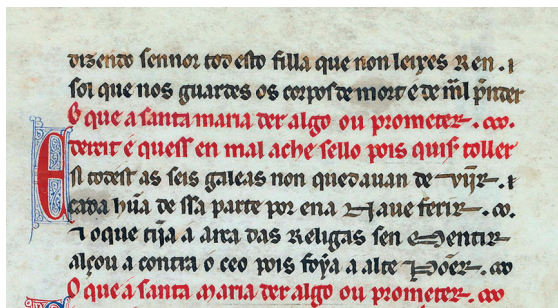 dizendo sennor tod esto filla que non leixes Ren . ꞇ
sol que nos guardes os corpos de mort e de mal p̃nder
O que a santa maria der algo ou prometer . ꝏ.
dereit é quess en mal ache sello pois quiſ toller
El todest as seis galeas non quedauan de vĩjr . ꞇ
cada hũa de ssa parte por ena Naue ferir . ꝏ.
ꞇ o que tĩja a arca das Religas sen Mentir
alçou a contra o ceo pois foỹa a alte põer . ꝏ
O que a santa Maria der algo ou prometer . ꝏ